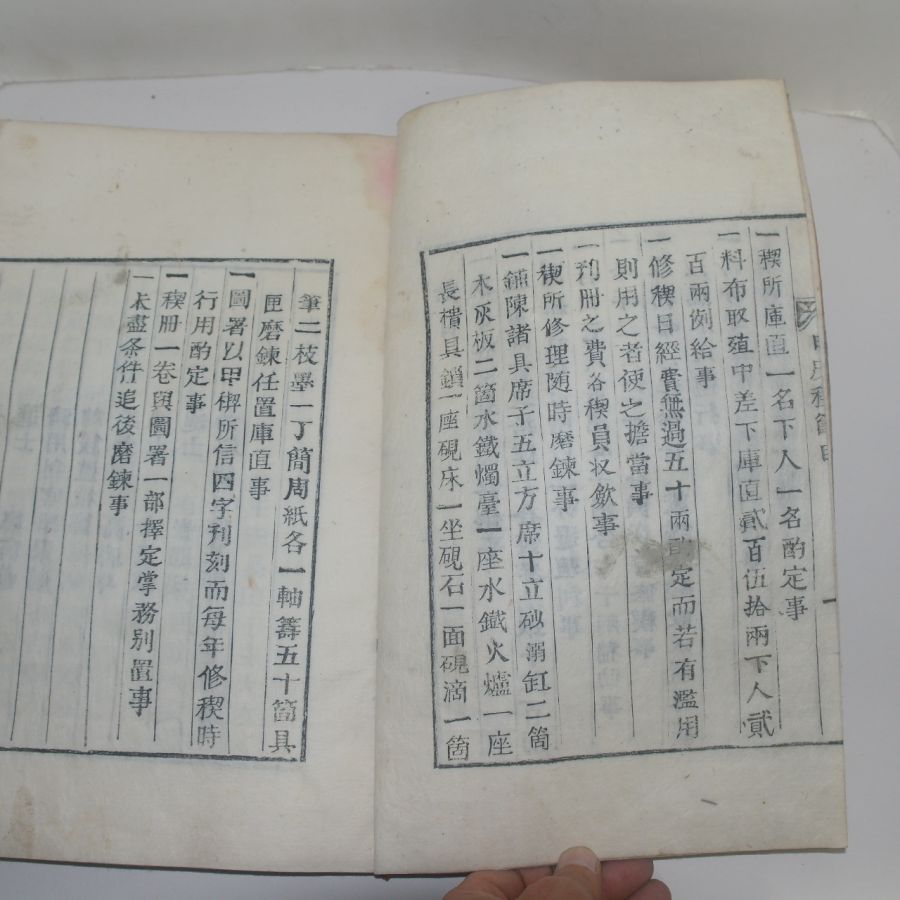 一稧所庫直一名下人一名酌定事
一料布取殖中差下庫直貳百伍拾兩下人貳
百兩例給事
一修稧日經費無過五十兩酌定而若有濫用
則用之者使之擔當事
一刋冊之費各稧員収斂事
一稧所修理随時磨鍊事
一鋪陳諸具席子五立方席十立砂溺缸二箇
木灰板二箇水鐵燭臺一座水鐵火爐一座
長横具鎖一座硯床一坐硯石一面硯滴一箇
筆二枝墨一丁簡周紙各一軸籌五十箇具
匣磨鍊任置庫直事
一圖署以甲稧所信四字刋刻而每年修稧時
行用酌定事
一稧冊一卷與圖署一部擇定掌務别置事
一未盡条件追後磨鍊事